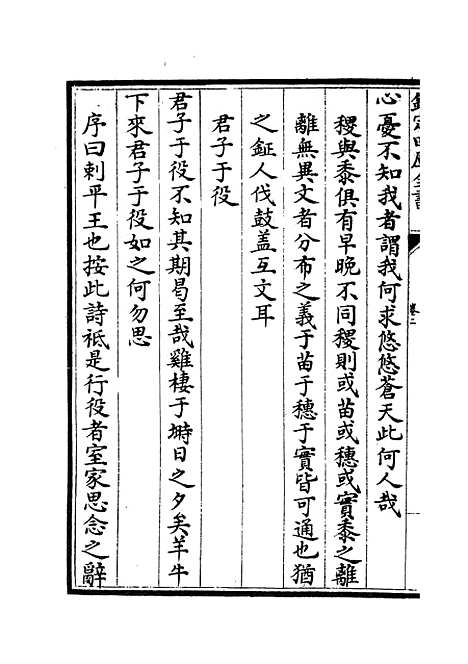 欽定四庫全書
卷二
心憂不知我者謂我何求悠悠蒼天此何人哉
稷與黍俱有早晚不同稷則或苗或穗或實黍之離
離無異文者分布之義于苗于穗于實皆可通也猶
之鉦人伐鼓盖互文耳
君子于役
君子于役不知其期曷至哉雞棲于塒日之夕矣羊牛
下來君子于役如之何勿思
序曰刺平王也按此詩祗是行役者室家思念之辭